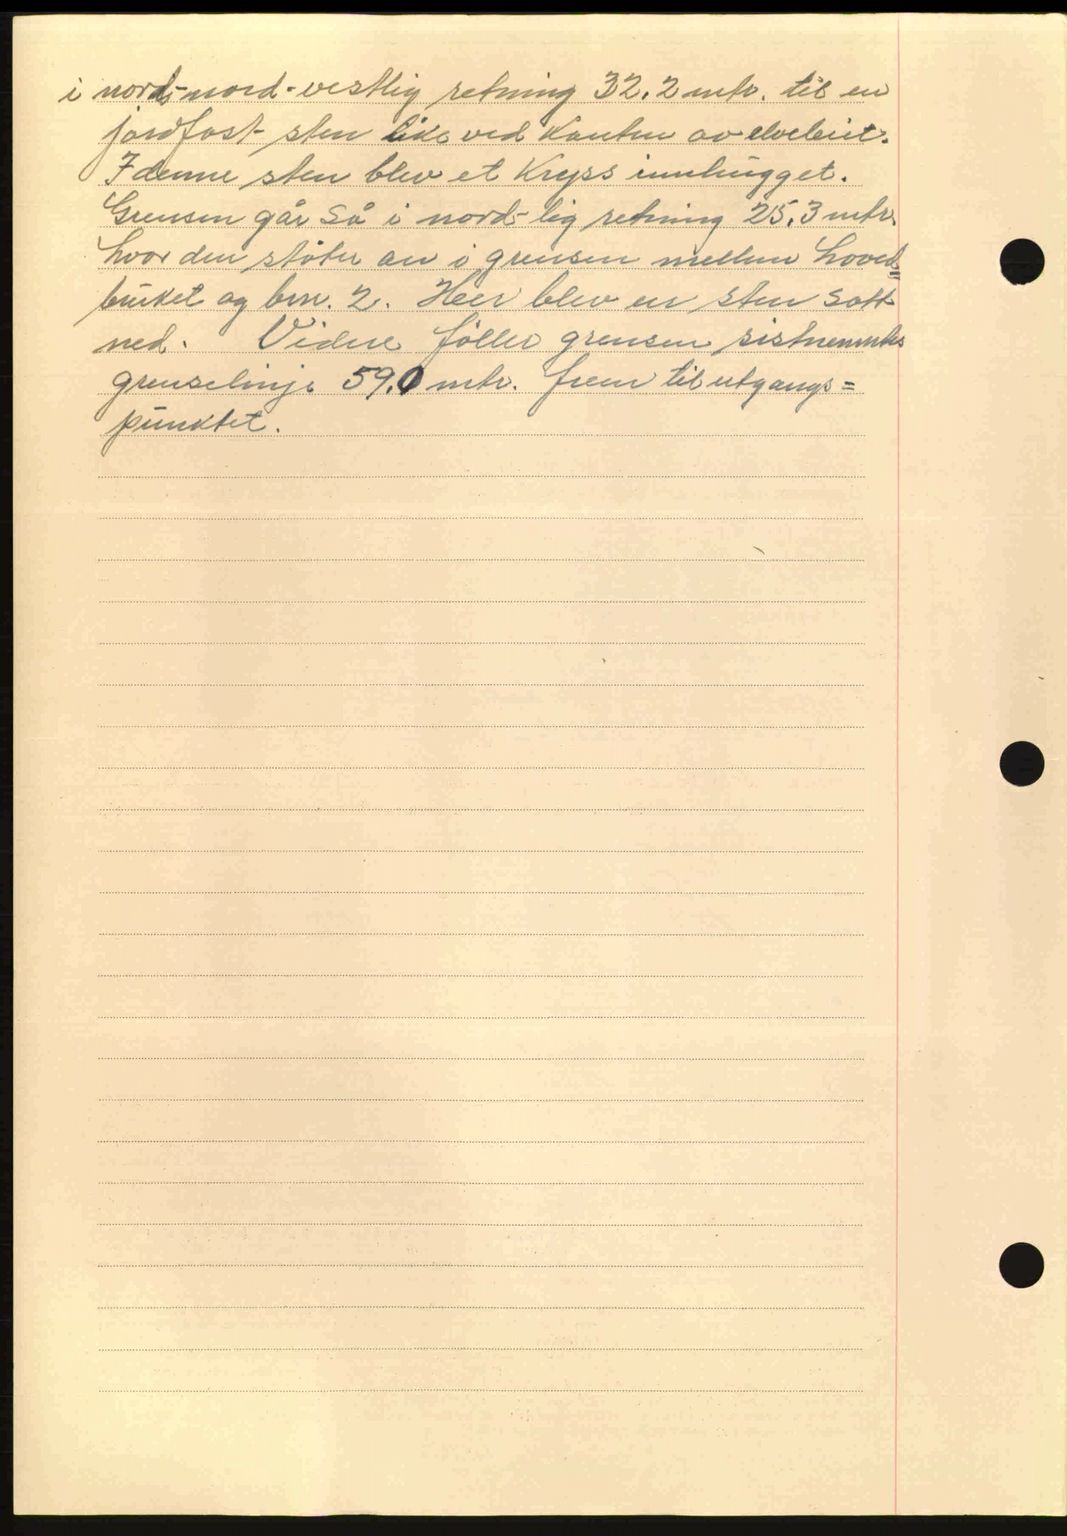 i nord-nord-vestlig retning 32.2 mtr. til en
jordfast sten like ved Kanten av elveleiet.
I denne sten blev et Kryss innhugget.
Grensen går så i nord-lig retning 25.3 mtr.
hvor den støter an i grensen mellem hoved-
bruket og brn. 2. Her blev en sten satt
ned. Videre føller grensen sistnevnte
grenselinje 59.0 mtr. frem til utgangs=
punktet.